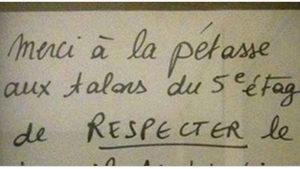 Merci à la pétasse
aux talons du 5e étag
de RESPECTER le